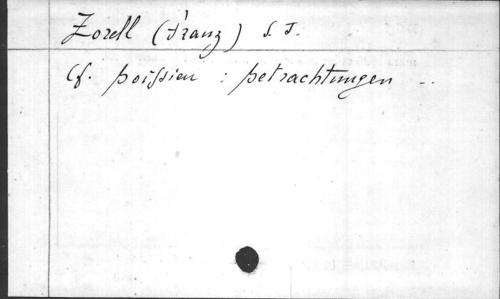 Zorell (Franz) S. J.
Cf. poissien : betrachtungen ..